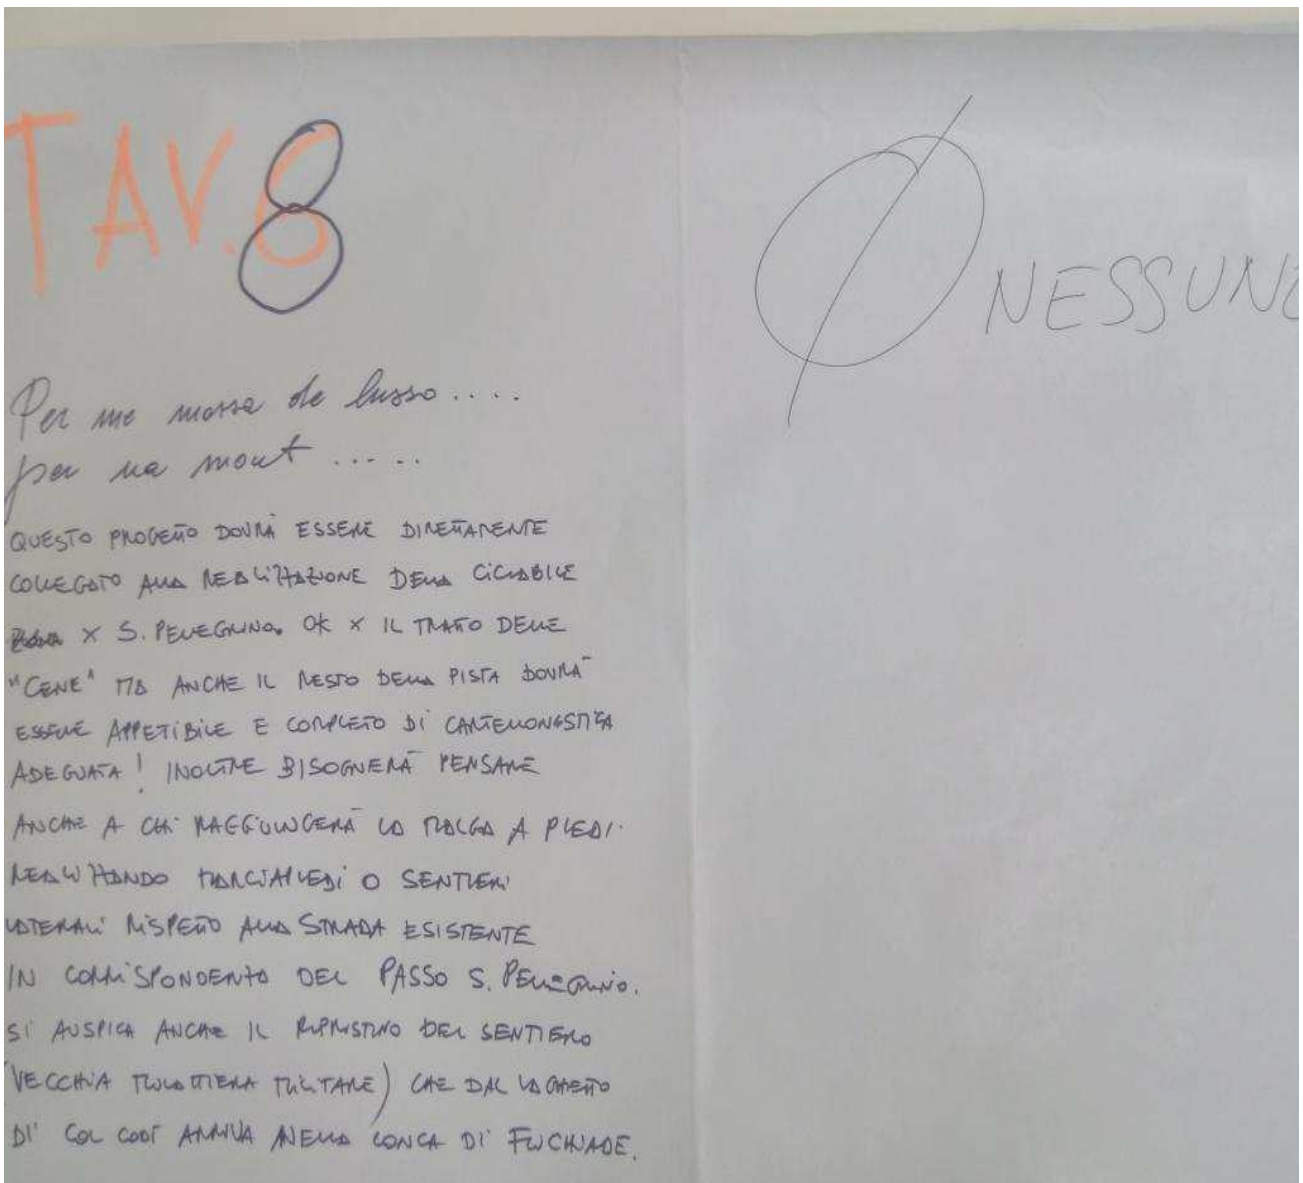 TAV. 8
Per me massa de lusso....
per na mont .....
QUESTO PROGETTO DOVRÀ ESSERE DIRETTAMENTE
COLLEGATO ALLA REALIZZAZIONE DELLA CICLABILE
X S. PELLEGRINO. OK X IL TRATTO DELLE
"CENE" MA ANCHE IL RESTO DELLA PISTA DOVRÀ
ESSERE APPETIBILE E COMPLETO DI CARTELLONISTICA
ADEGUATA! INOLTRE BISOGNERÀ PENSARE
ANCHE A CHI RAGGIUNGERÀ LA MALGA A PIEDI
REALIZZANDO MARCIAPIEDI O SENTIERI
LATERALI RISPETTO ALLA STRADA ESISTENTE
IN CORRISPONDENZA DEL PASSO S. PELLEGRINO.
SI AUSPICA ANCHE IL RIPRISTINO DEL SENTIERO
(VECCHIA MULATTIERA MILITARE) CHE DAL LAGHETTO
DI COL ARRIVA NELLA CONCA DI FUCHIADE.
Ø NESSUNO